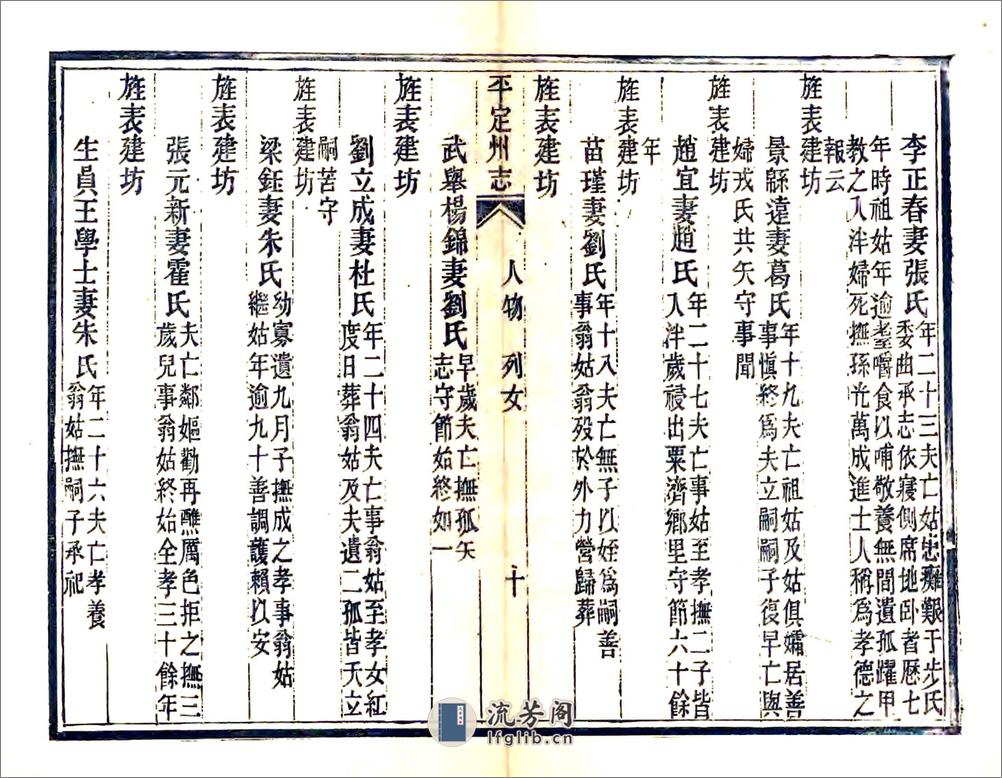 李正春妻張氏年二十三夫亡姑患癱艱于步氏
委曲承志依寢側席地臥者歷七
年時祖姑年逾耋嚼食以哺敬養無間遺孤躍甲
教之入泮婦死撫孫光萬成進士人稱為孝德之
報云
旌表建坊
景繇遠妻葛氏年十九夫亡祖姑及姑俱孀居善
事慎終為夫立嗣子復早亡與
婦戎氏共矢守事聞
旌表建坊
趙宜妻趙氏年二十七夫亡事姑至孝撫二子皆
入泮歲祲出粟濟鄉里守節六十餘
年
旌表建坊
苗瑾妻劉氏年十八夫亡無子以姪為嗣善
事翁姑翁歿於外力營歸葬
旌表建坊
平定州志 人物 列女 十
武舉楊錦妻劉氏早歲夫亡撫孤矢
志守節始終如一
旌表建坊
劉立成妻杜氏年二十四夫亡事翁姑至孝女紅
度日葬翁姑及夫遺二孤皆夭立
嗣苦守
旌表建坊
梁鈺妻朱氏幼寡遺九月子撫成之孝事翁姑
繼姑年逾九十善調護賴以安
旌表建坊
張元新妻霍氏夫亡鄰嫗勸再醮厲色拒之撫三
歲兒事翁姑終始全孝三十餘年
旌表建坊
生員王學士妻朱氏年二十六夫亡孝養
翁姑撫嗣子承祀
流芳阁
lfglib.cn